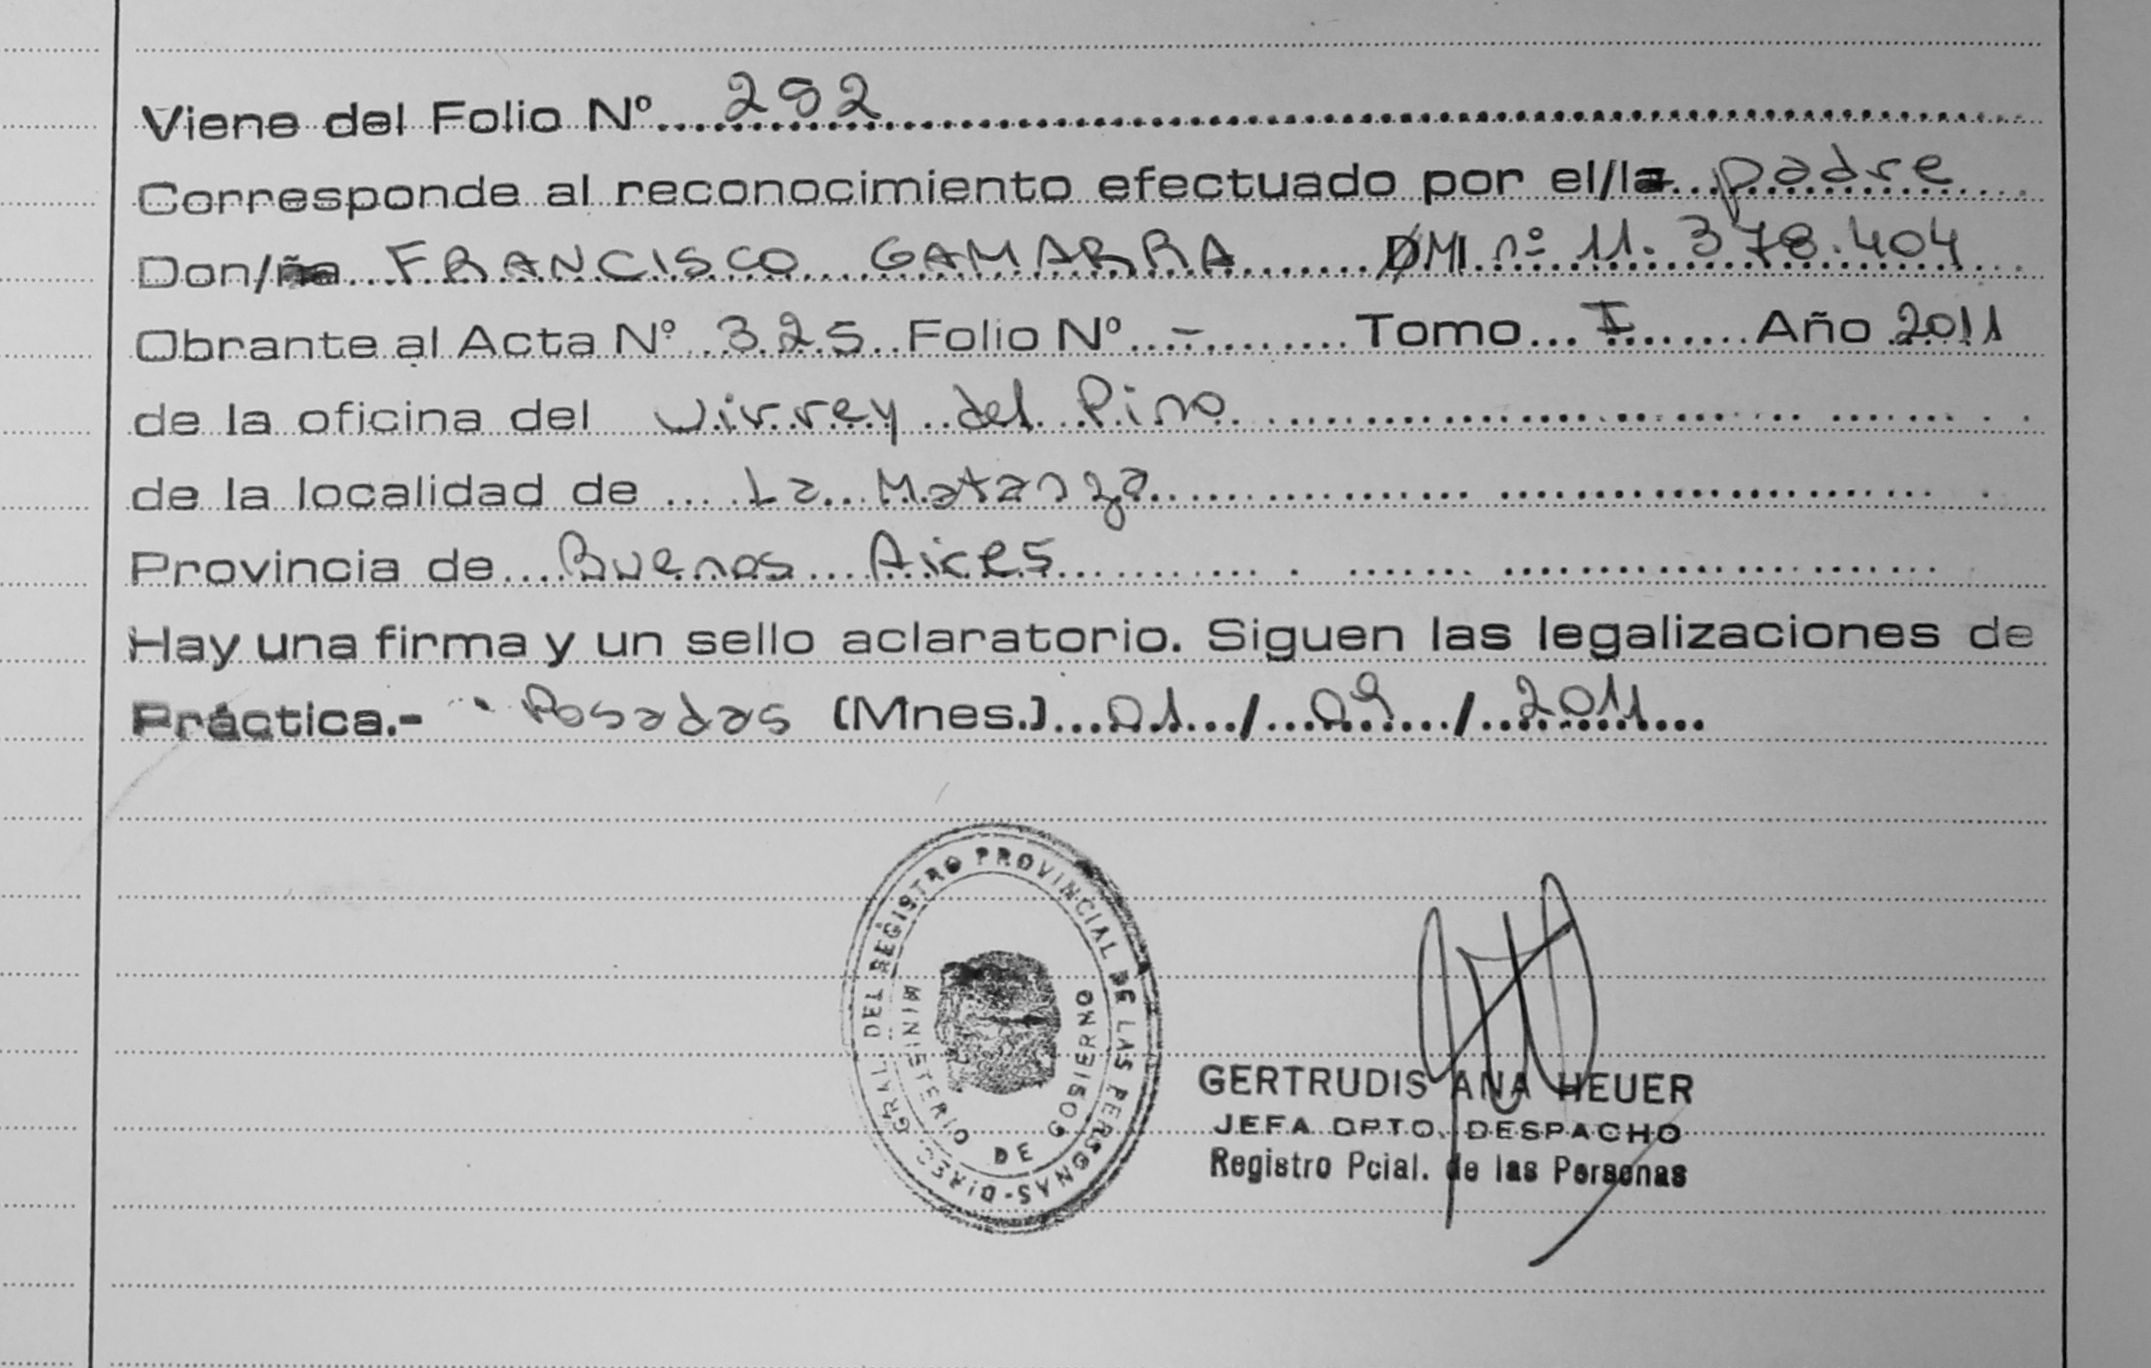 Viene del Folio Nº....292
Corresponde al reconocimiento efectuado por el/la padre
Don/ña FRANCISCO GAMARRA DMI nº 11.378.404
Obrante al Acta Nº 325 Folio Nº - Tomo I Año 2011
de la oficina del Virrey del Pino
de la localidad de La Matanza
Provincia de Buenos Aires
Hay una firma y un sello aclaratorio. Siguen las legalizaciones de
Práctica.- Posadas (Mnes.) 01/09/2011
DIREC. GRAL. DEL REGISTRO PROVINCIAL DE LAS PERSONAS-
MINISTERIO DE GOBIERNO
GERTRUDIS ANA HEUER
JEFA DPTO. DESPACHO
Registro Pcial. de las Personas